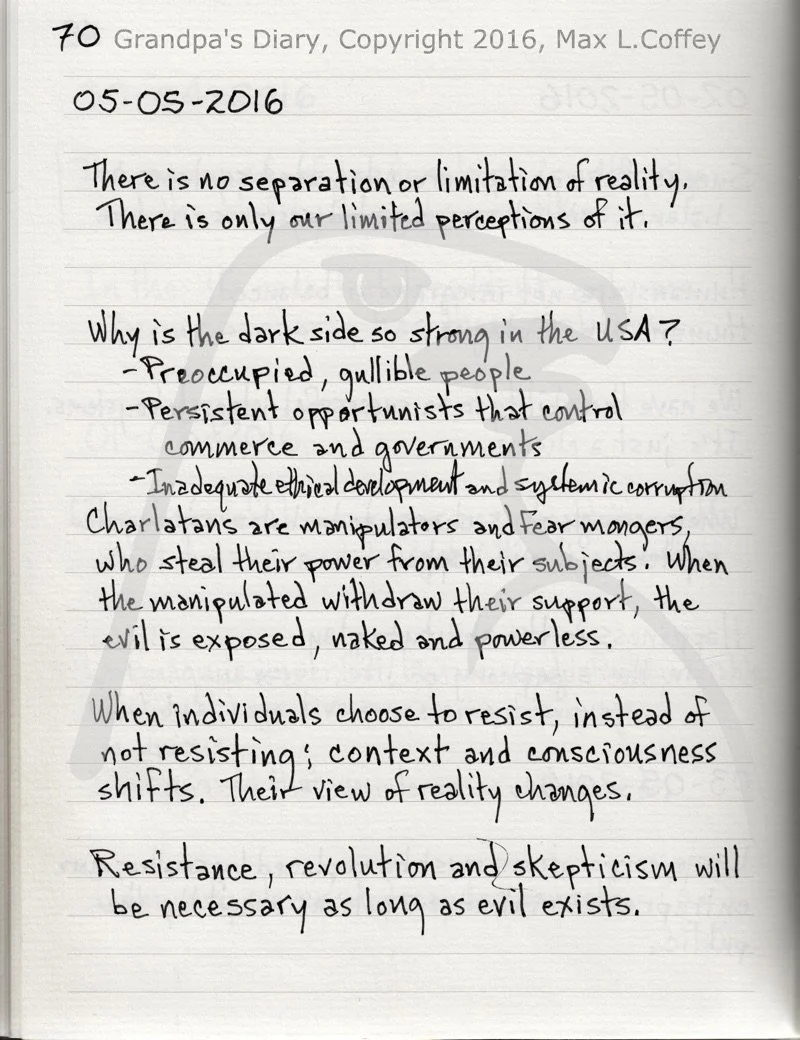 70 Grandpa's Diary, Copyright 2016, Max L.Coffey
05-05-2016
There is no separation or limitation of reality.
There is only our limited perceptions of it.
Why is the dark side so strong in the USA?
-Preoccupied, gullible people
-Persistent opportunists that control
commerce and governments
-Inadequate ethical development and systemic corruption
Charlatans are manipulators and fear mongers,
who steal their power from their subjects. When
the manipulated withdraw their support, the
evil is exposed, naked and powerless.
When individuals choose to resist, instead of
not resisting; context and consciousness
shifts. Their view of reality changes.
Resistance, revolution and skepticism will
be necessary as long as evil exists.